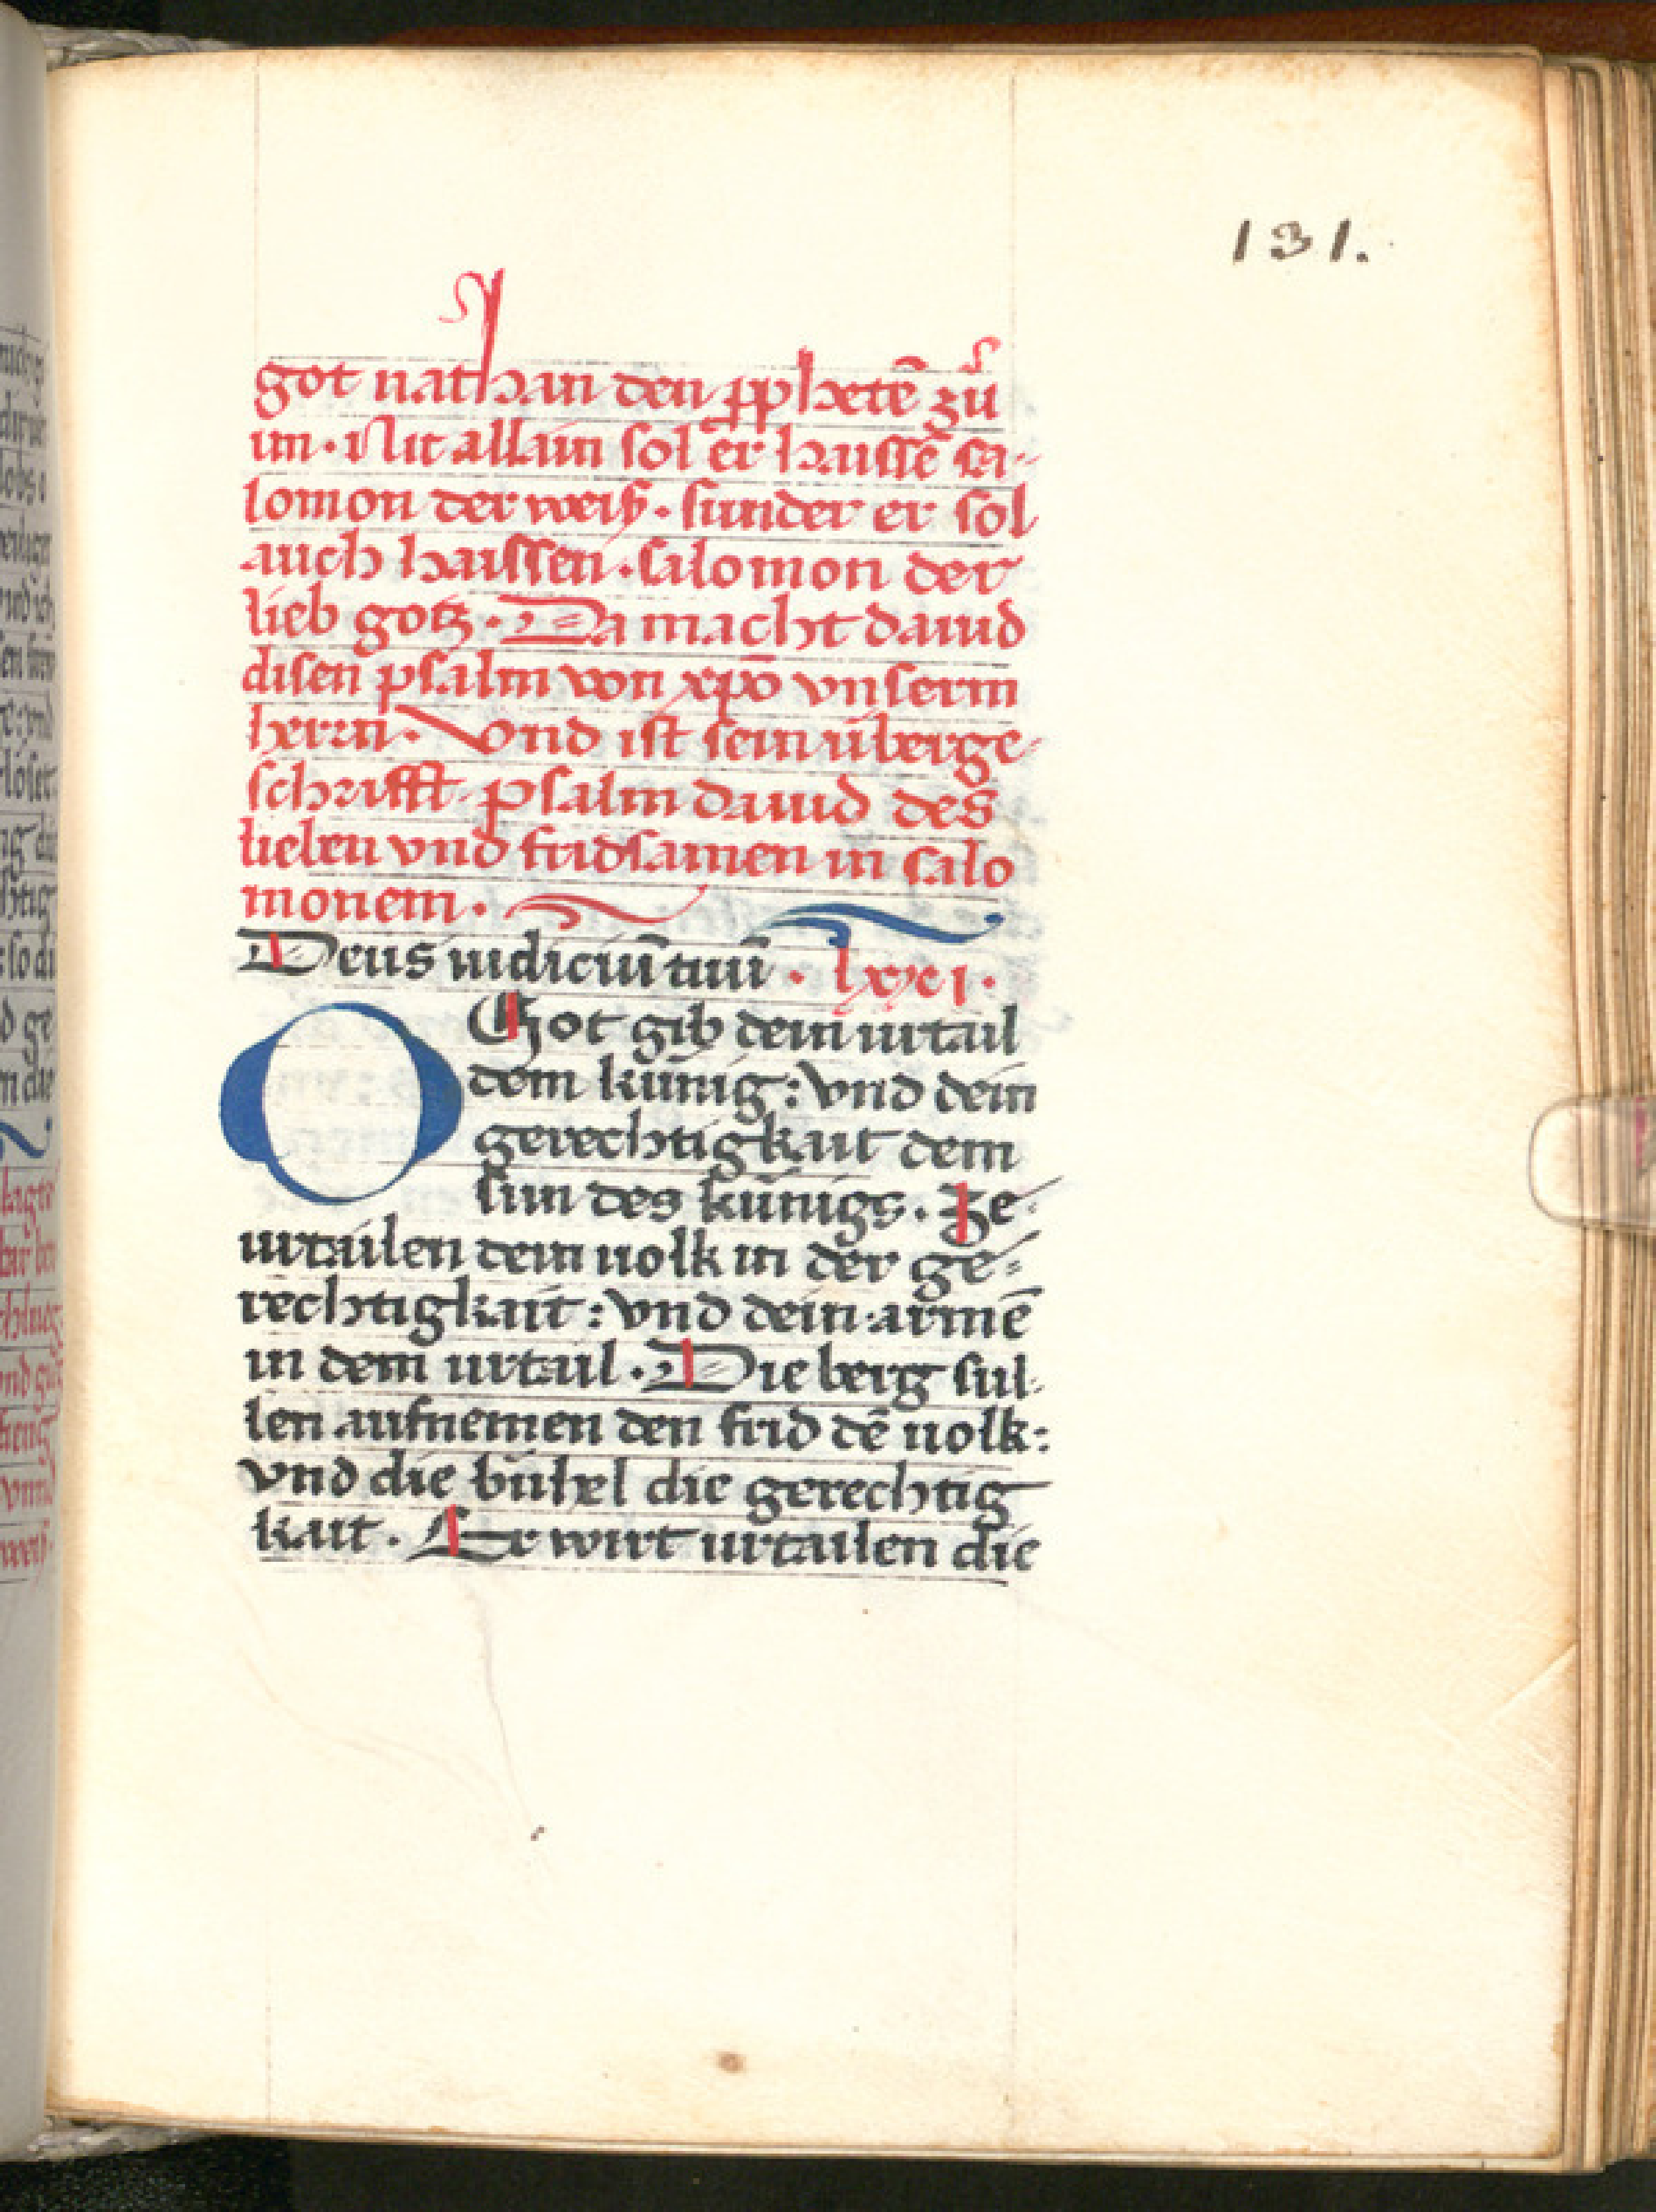 131.
got nathan den ꝓphetē zů
im · Nit allain sol er haissē sa-
lomon der weiß · sunder er sol
auch haissen · salomon der
lieb gotz · Da macht dauid
disen psalm von xp̄o vnserm
herrn · Vnd ist sein überge-
schrifft · psalm dauid des
lieben vnd fridsamen in salo
monem ·
Deus iudiciū tuū · lxxi ·
O Got gib dein urtail
dem künig : vnd dein
gerechtigkait dem
sun des künigs . Ze-
urtailen dein uolk in der ge-
rechtigkait : vnd dein armē
in dem urtail . Die berg sul-
len aufnemen den frid dē uolk :
vnd die bühel die gerechtig
kait . Er wirt urtailen die